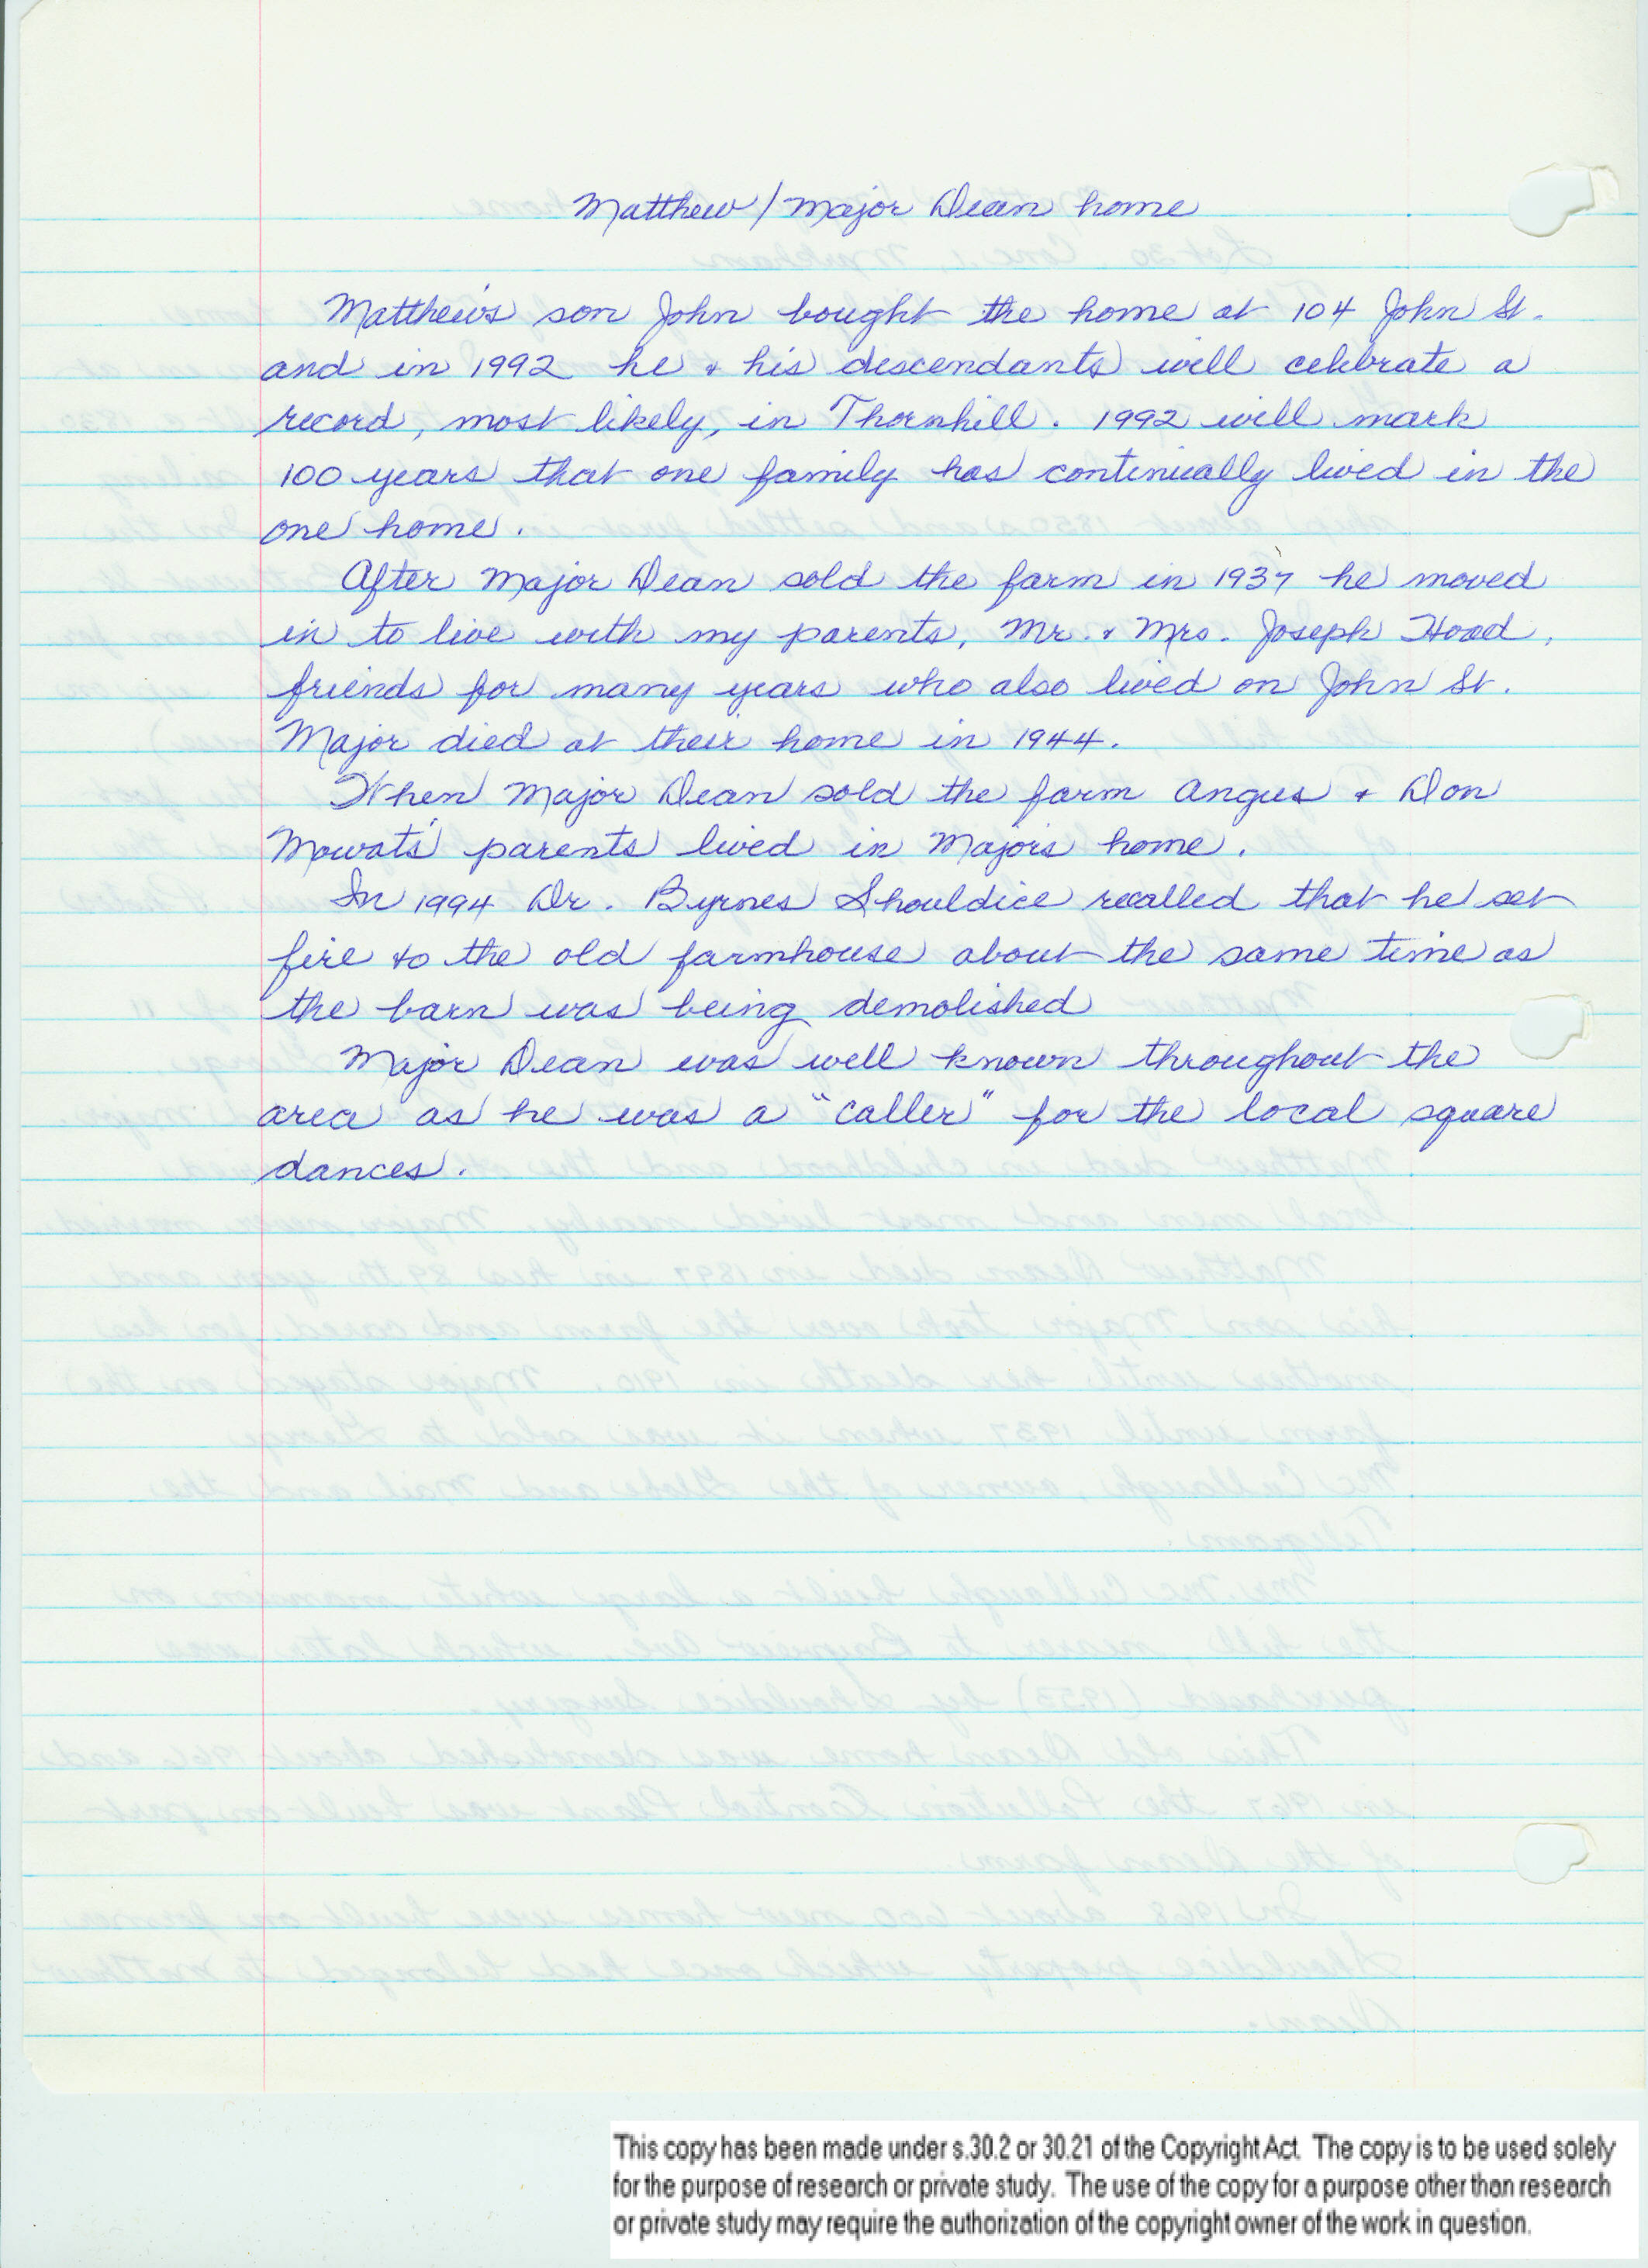 Matthew / Major Dean home
Matthew's son John bought the home at 104 John St.
and in 1992 he & his descendants will celebrate a
record, most likely, in Thornhill. 1992 will mark
100 years that one family has continually lived in the
one home.
After Major Dean sold the farm in 1937 he moved
in to live with my parents, Mr. & Mrs. Joseph Hood,
friends for many years who also lived on John St.
Major died at their home in 1944.
When Major Dean sold the farm Angus & Don
Mowats' parents lived in Major's home.
In 1994 Dr. Byrnes Shouldice recalled that he set
fire to the old farmhouse about the same time as
the barn was being demolished
Major Dean was well known throughout the
area as he was a "caller" for the local square
dances.
This copy has been made under s.30.2 or 30.21 of the Copyright Act. The copy is to be used solely
for the purpose of research or private study. The use of the copy for a purpose other than research
or private study may require the authorization of the copyright owner of the work in question.